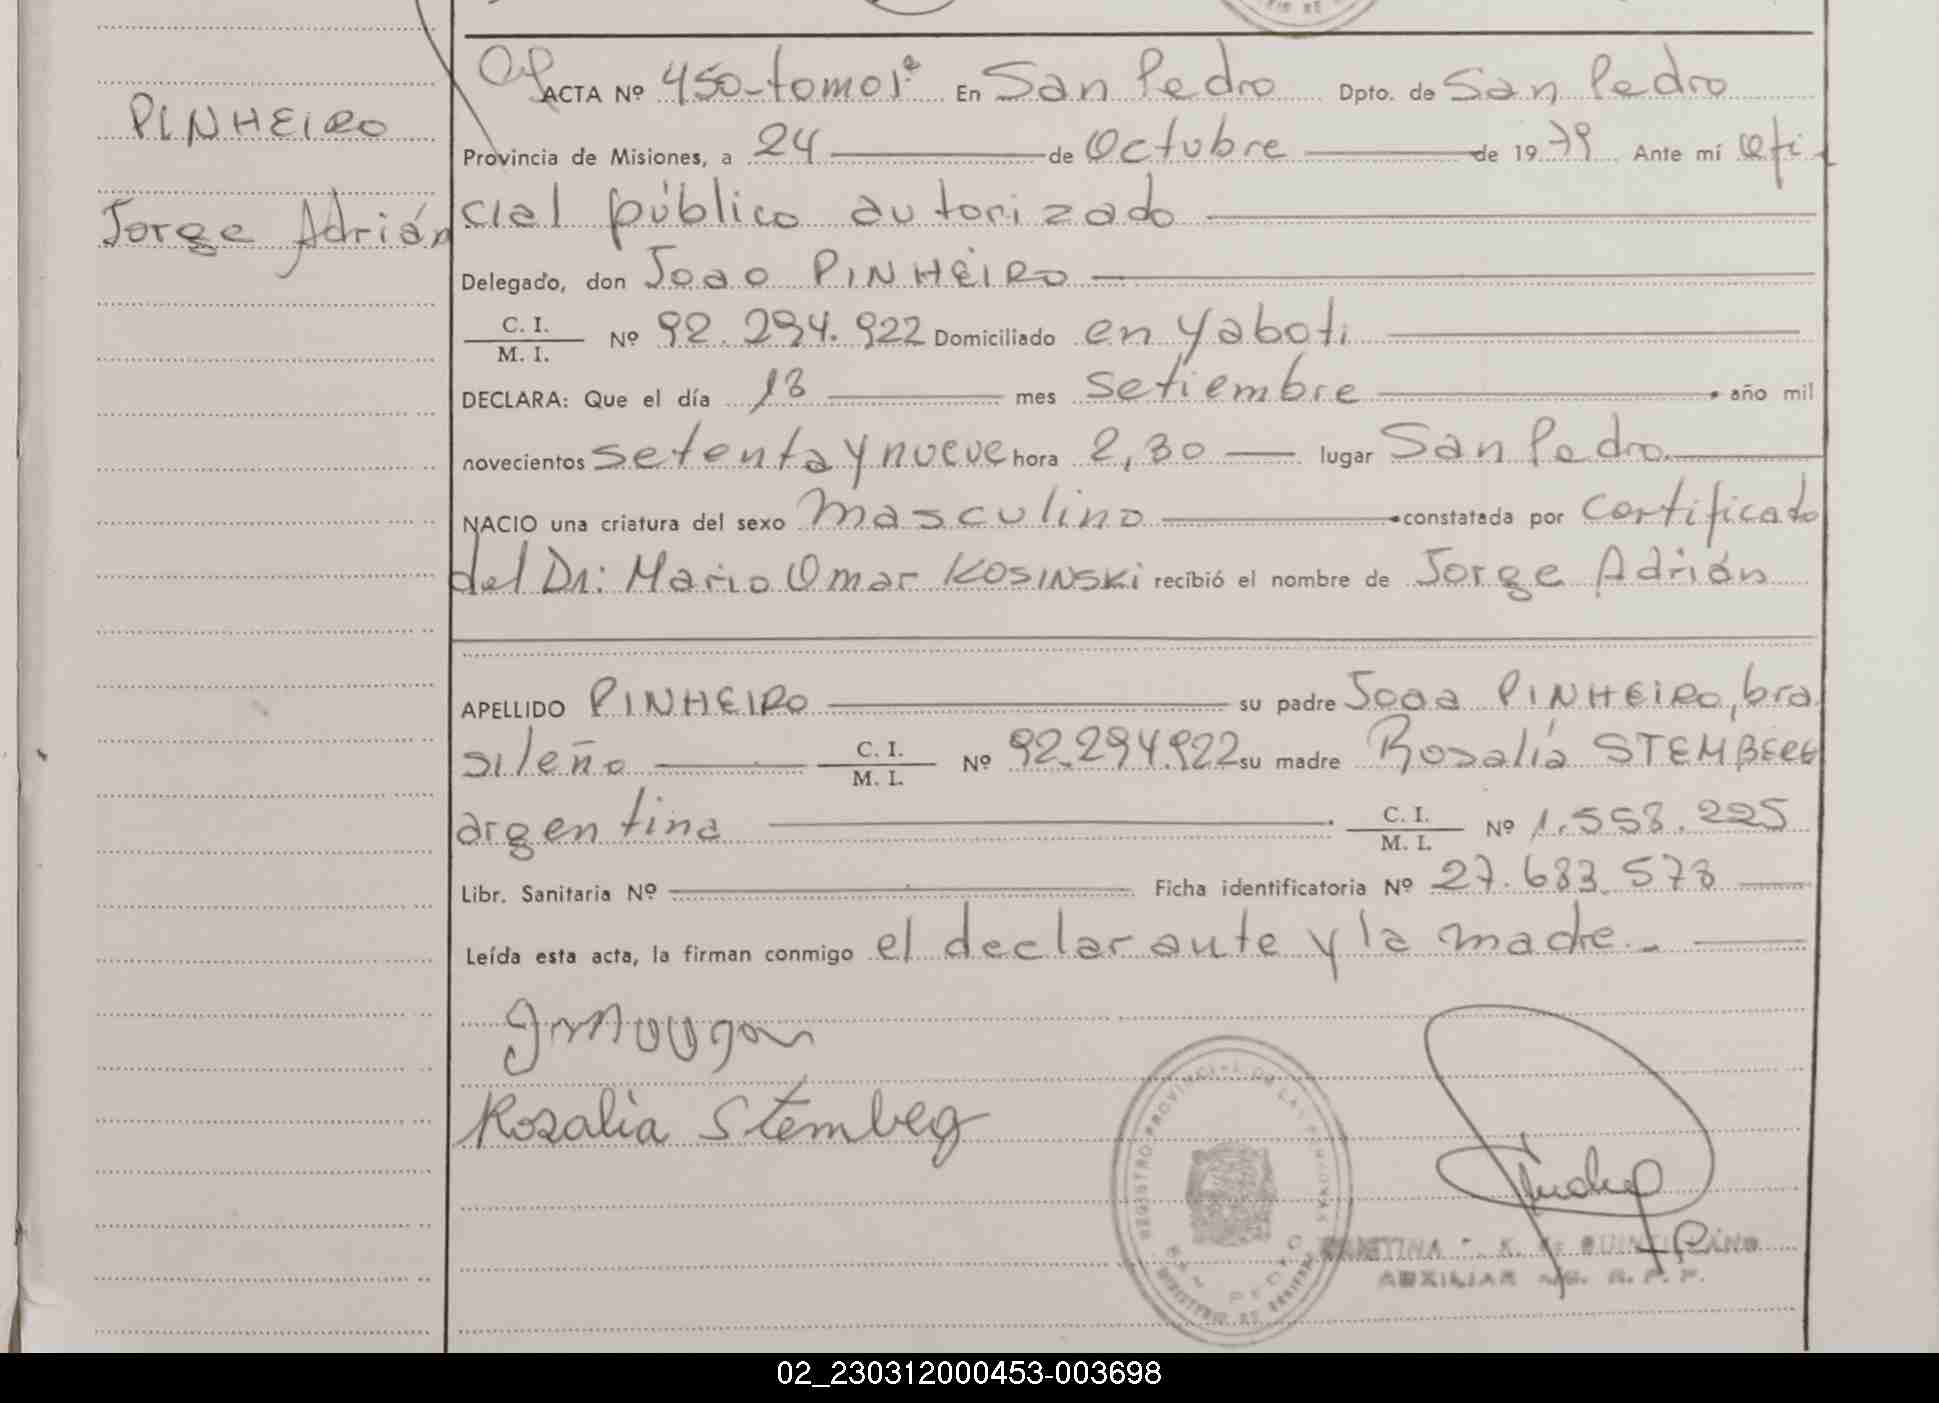 ACTA Nº 450-tomo1º En San Pedro Dpto. de San Pedro
PINHEIRO
Provincia de Misiones, a 24 de Octubre de 1979 Ante mí ofi
Jorge Adrián
cial público autorizado
Delegado, don Joao PINHEIRO
C. I.
M. I. Nº 92.294.922 Domiciliado en Yaboti
DECLARA: Que el día 18 mes setiembre año mil
novecientos setenta y nueve hora 2,30 lugar San Pedro
NACIO una criatura del sexo masculino constatada por certificato
del Dr: Mario Omar KOSINSKI recibió el nombre de Jorge Adrián
APELLIDO PINHEIRO su padre Joao PINHEIRO, bra
sileño C. I. M. I. Nº 92.294.922 su madre Rosalía STEMBERG
argentina C. I. M. I. Nº 1.558.225
Libr. Sanitaria Nº Ficha identificatoria Nº 27.683.578
Leída esta acta, la firman conmigo el declarante y la madre.-
Rosalia Stembeg
REGISTRO PROVINCIAL DE LAS PERSONAS
SAN PEDRO
MINISTERIO DE GOBIERNO
AUXILIAR
02_230312000453-003698